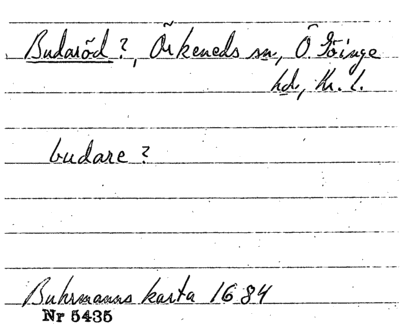 Budaröd?, Örkeneds sn, Ö. Göinge
hd, Kr. l.
budare?
Buhrmanns karta 1684
Nr 5435